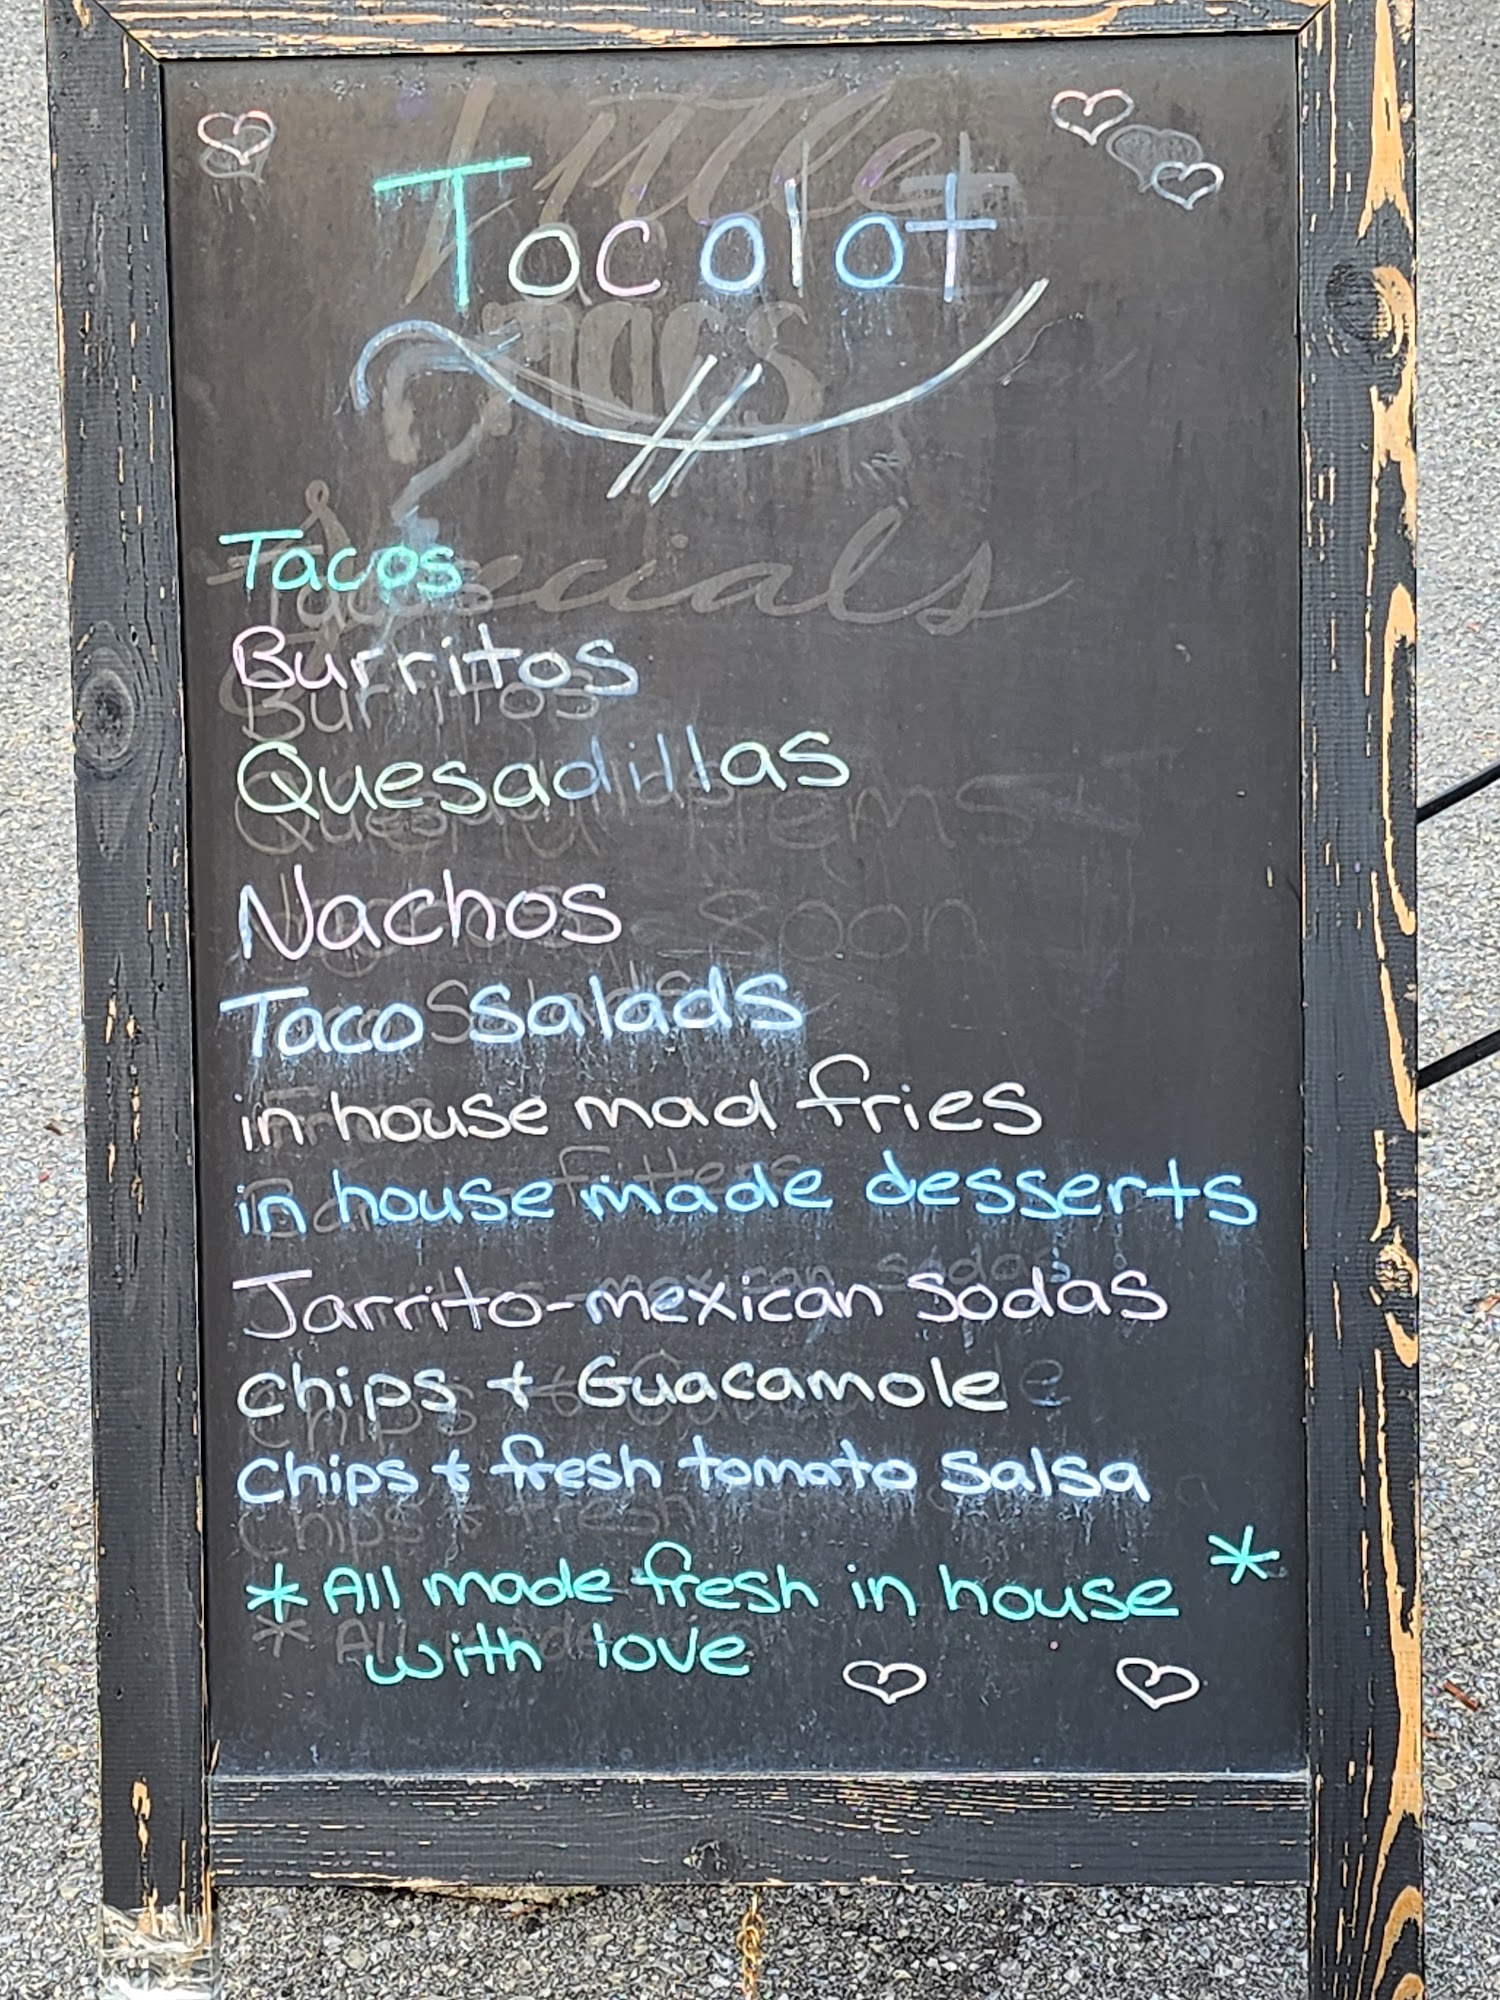 Tacolot
Tacos
Burritos
Quesadillas
Nachos
Taco Salads
in house mad fries
in house made desserts
Jarrito-mexican sodas
Chips + Guacamole
Chips + fresh tomato Salsa
* All made fresh in house *
with love